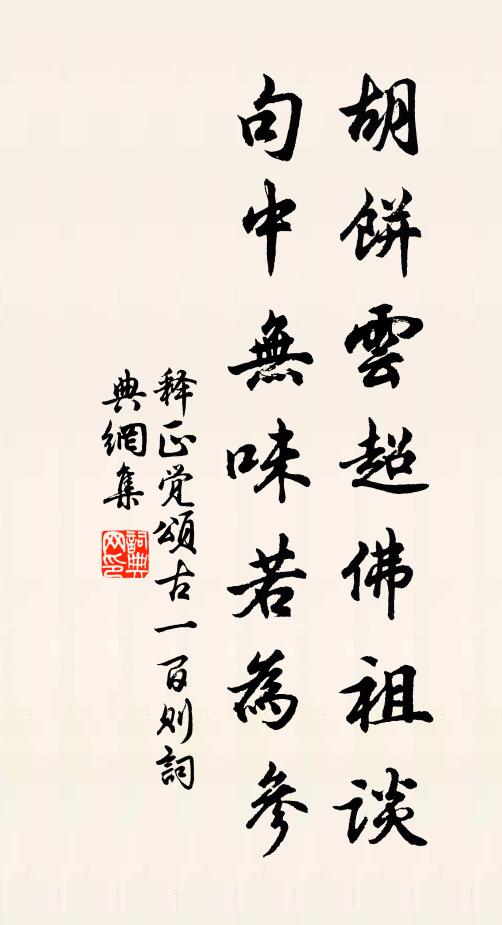 胡餅雲超佛祖談
句中無味若為參
释正觉頌古一百则詞
典網集
詞典
网印